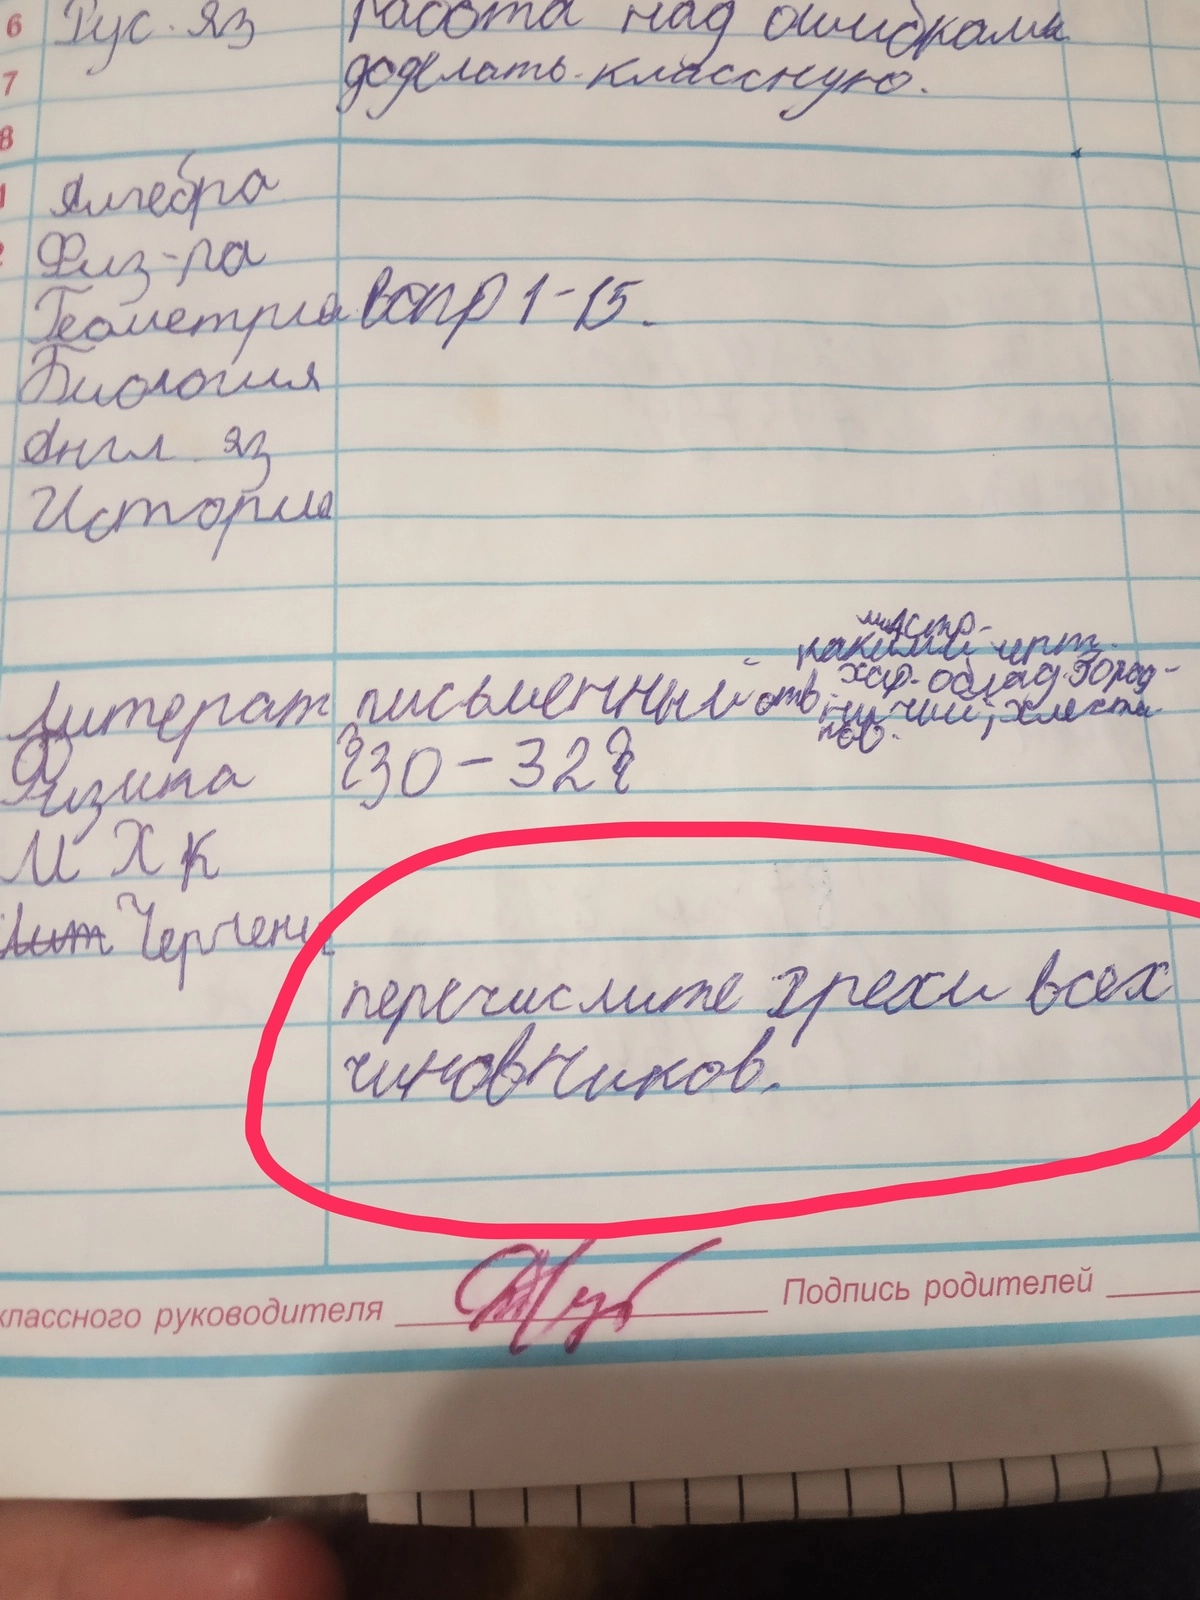 6 Рус. яз Работа над ошибками
7 доделать классную.
8
1 Алгебра
2 Физ-ра
Геометрия вопр 1-15.
Биология
Англ. яз
История
какими черт.
хар. облад. Город-
Литерат письменный отв. ничий, Хлеста
ков.
Физика §30-32§
МХК
Лит Черчени
перечислите грехи всех
чиновников.
классного руководителя Подпись родителей